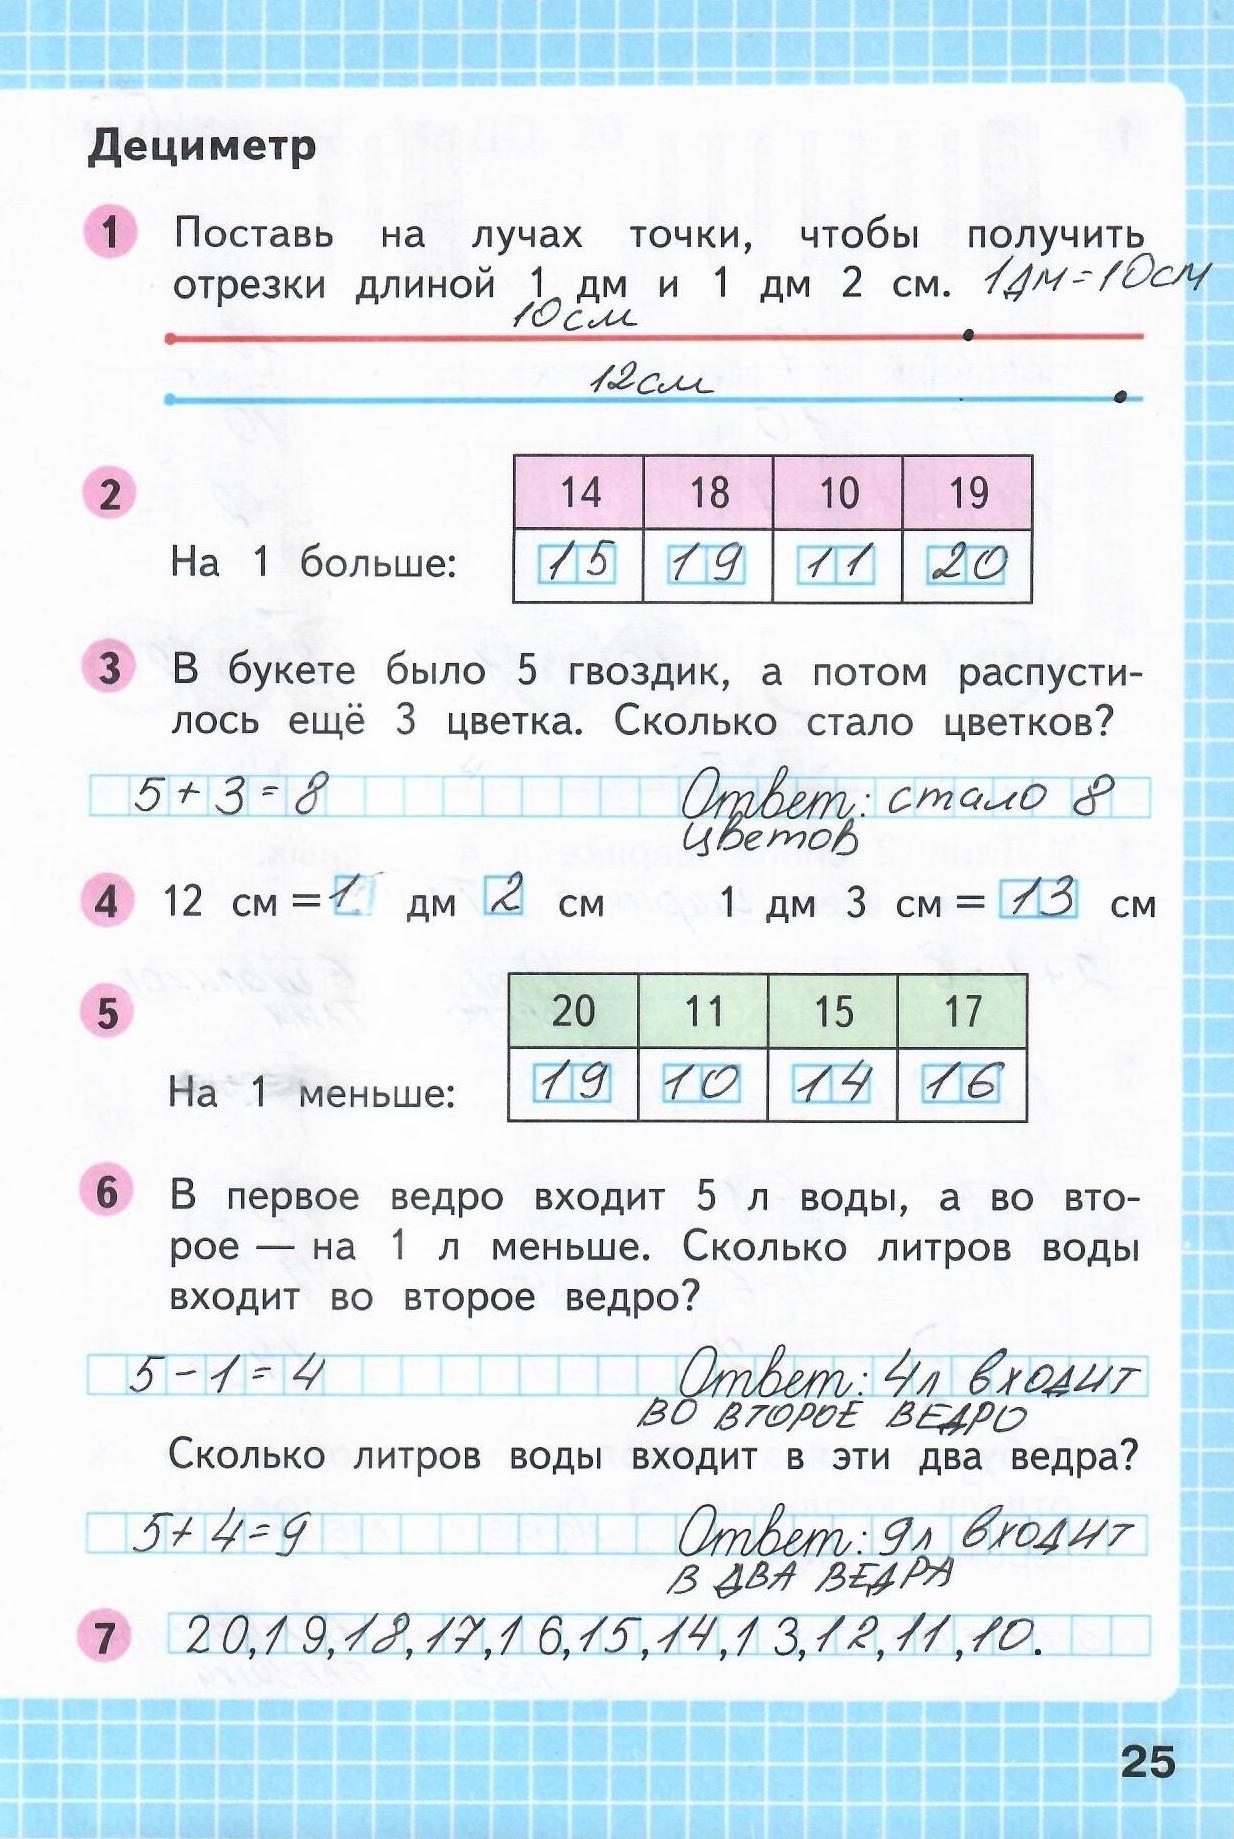 Дециметр
1 Поставь на лучах точки, чтобы получить
отрезки длиной 1 дм и 1 дм 2 см. 1дм=10см
10см
12см
2 14 18 10 19
На 1 больше: 15 19 11 20
3 В букете было 5 гвоздик, а потом распусти-
лось ещё 3 цветка. Сколько стало цветков?
5+3=8 Ответ: стало 8
цветов
4 12 см = 1 дм 2 см 1 дм 3 см = 13 см
5 20 11 15 17
На 1 меньше: 19 10 14 16
6 В первое ведро входит 5 л воды, а во вто-
рое — на 1 л меньше. Сколько литров воды
входит во второе ведро?
5-1=4 Ответ: 4л входит
ВО ВТОРОЕ ВЕДРО
Сколько литров воды входит в эти два ведра?
5+4=9 Ответ: 9л входит
В ДВА ВЕДРА
7 20,19,18,17,16,15,14,13,12,11,10.
25